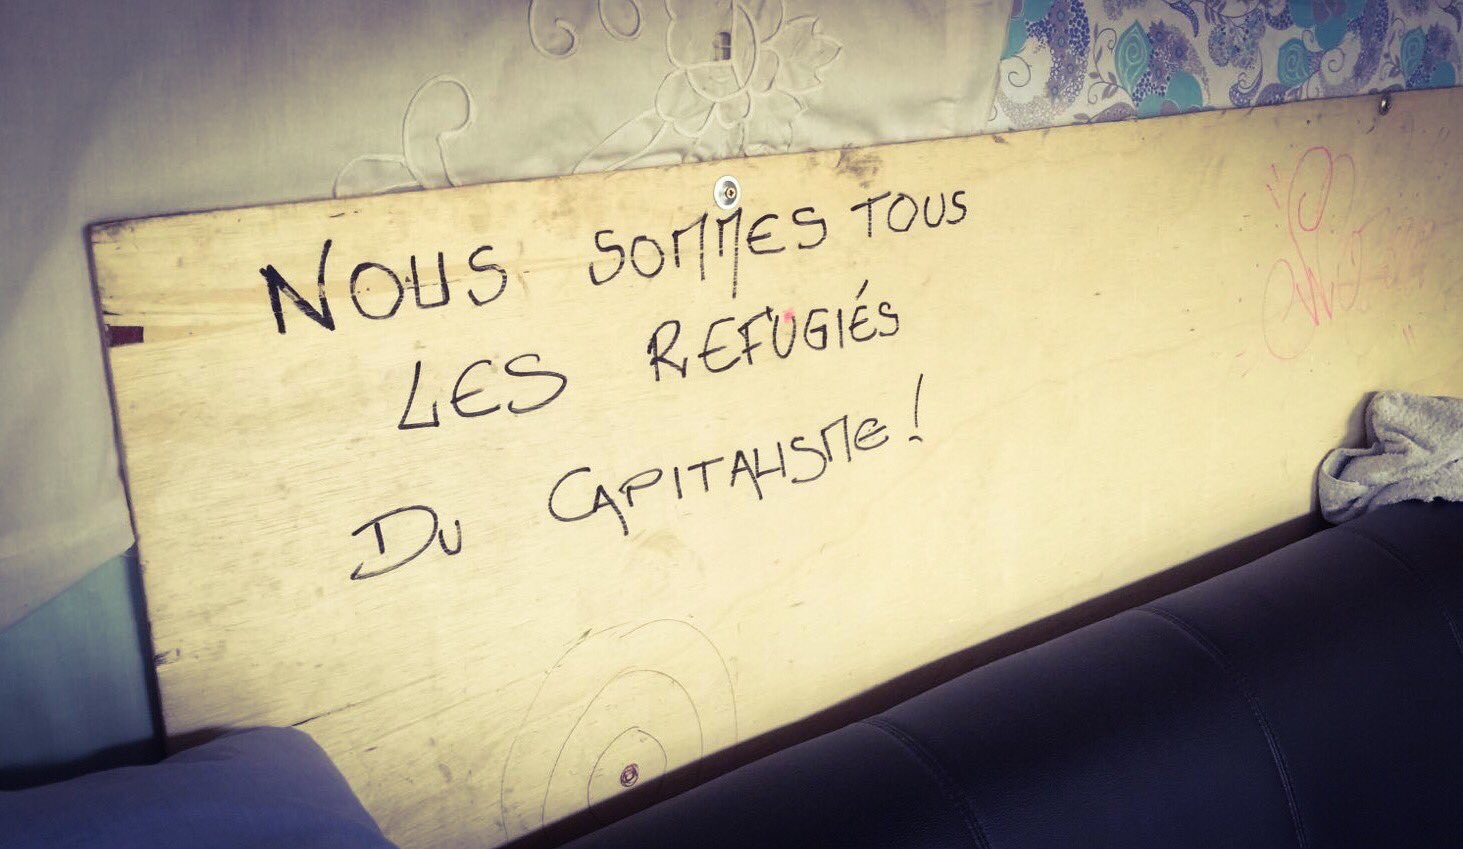 NOUS SOMMES TOUS
LES REFUGIÉS
DU CAPITALISME!